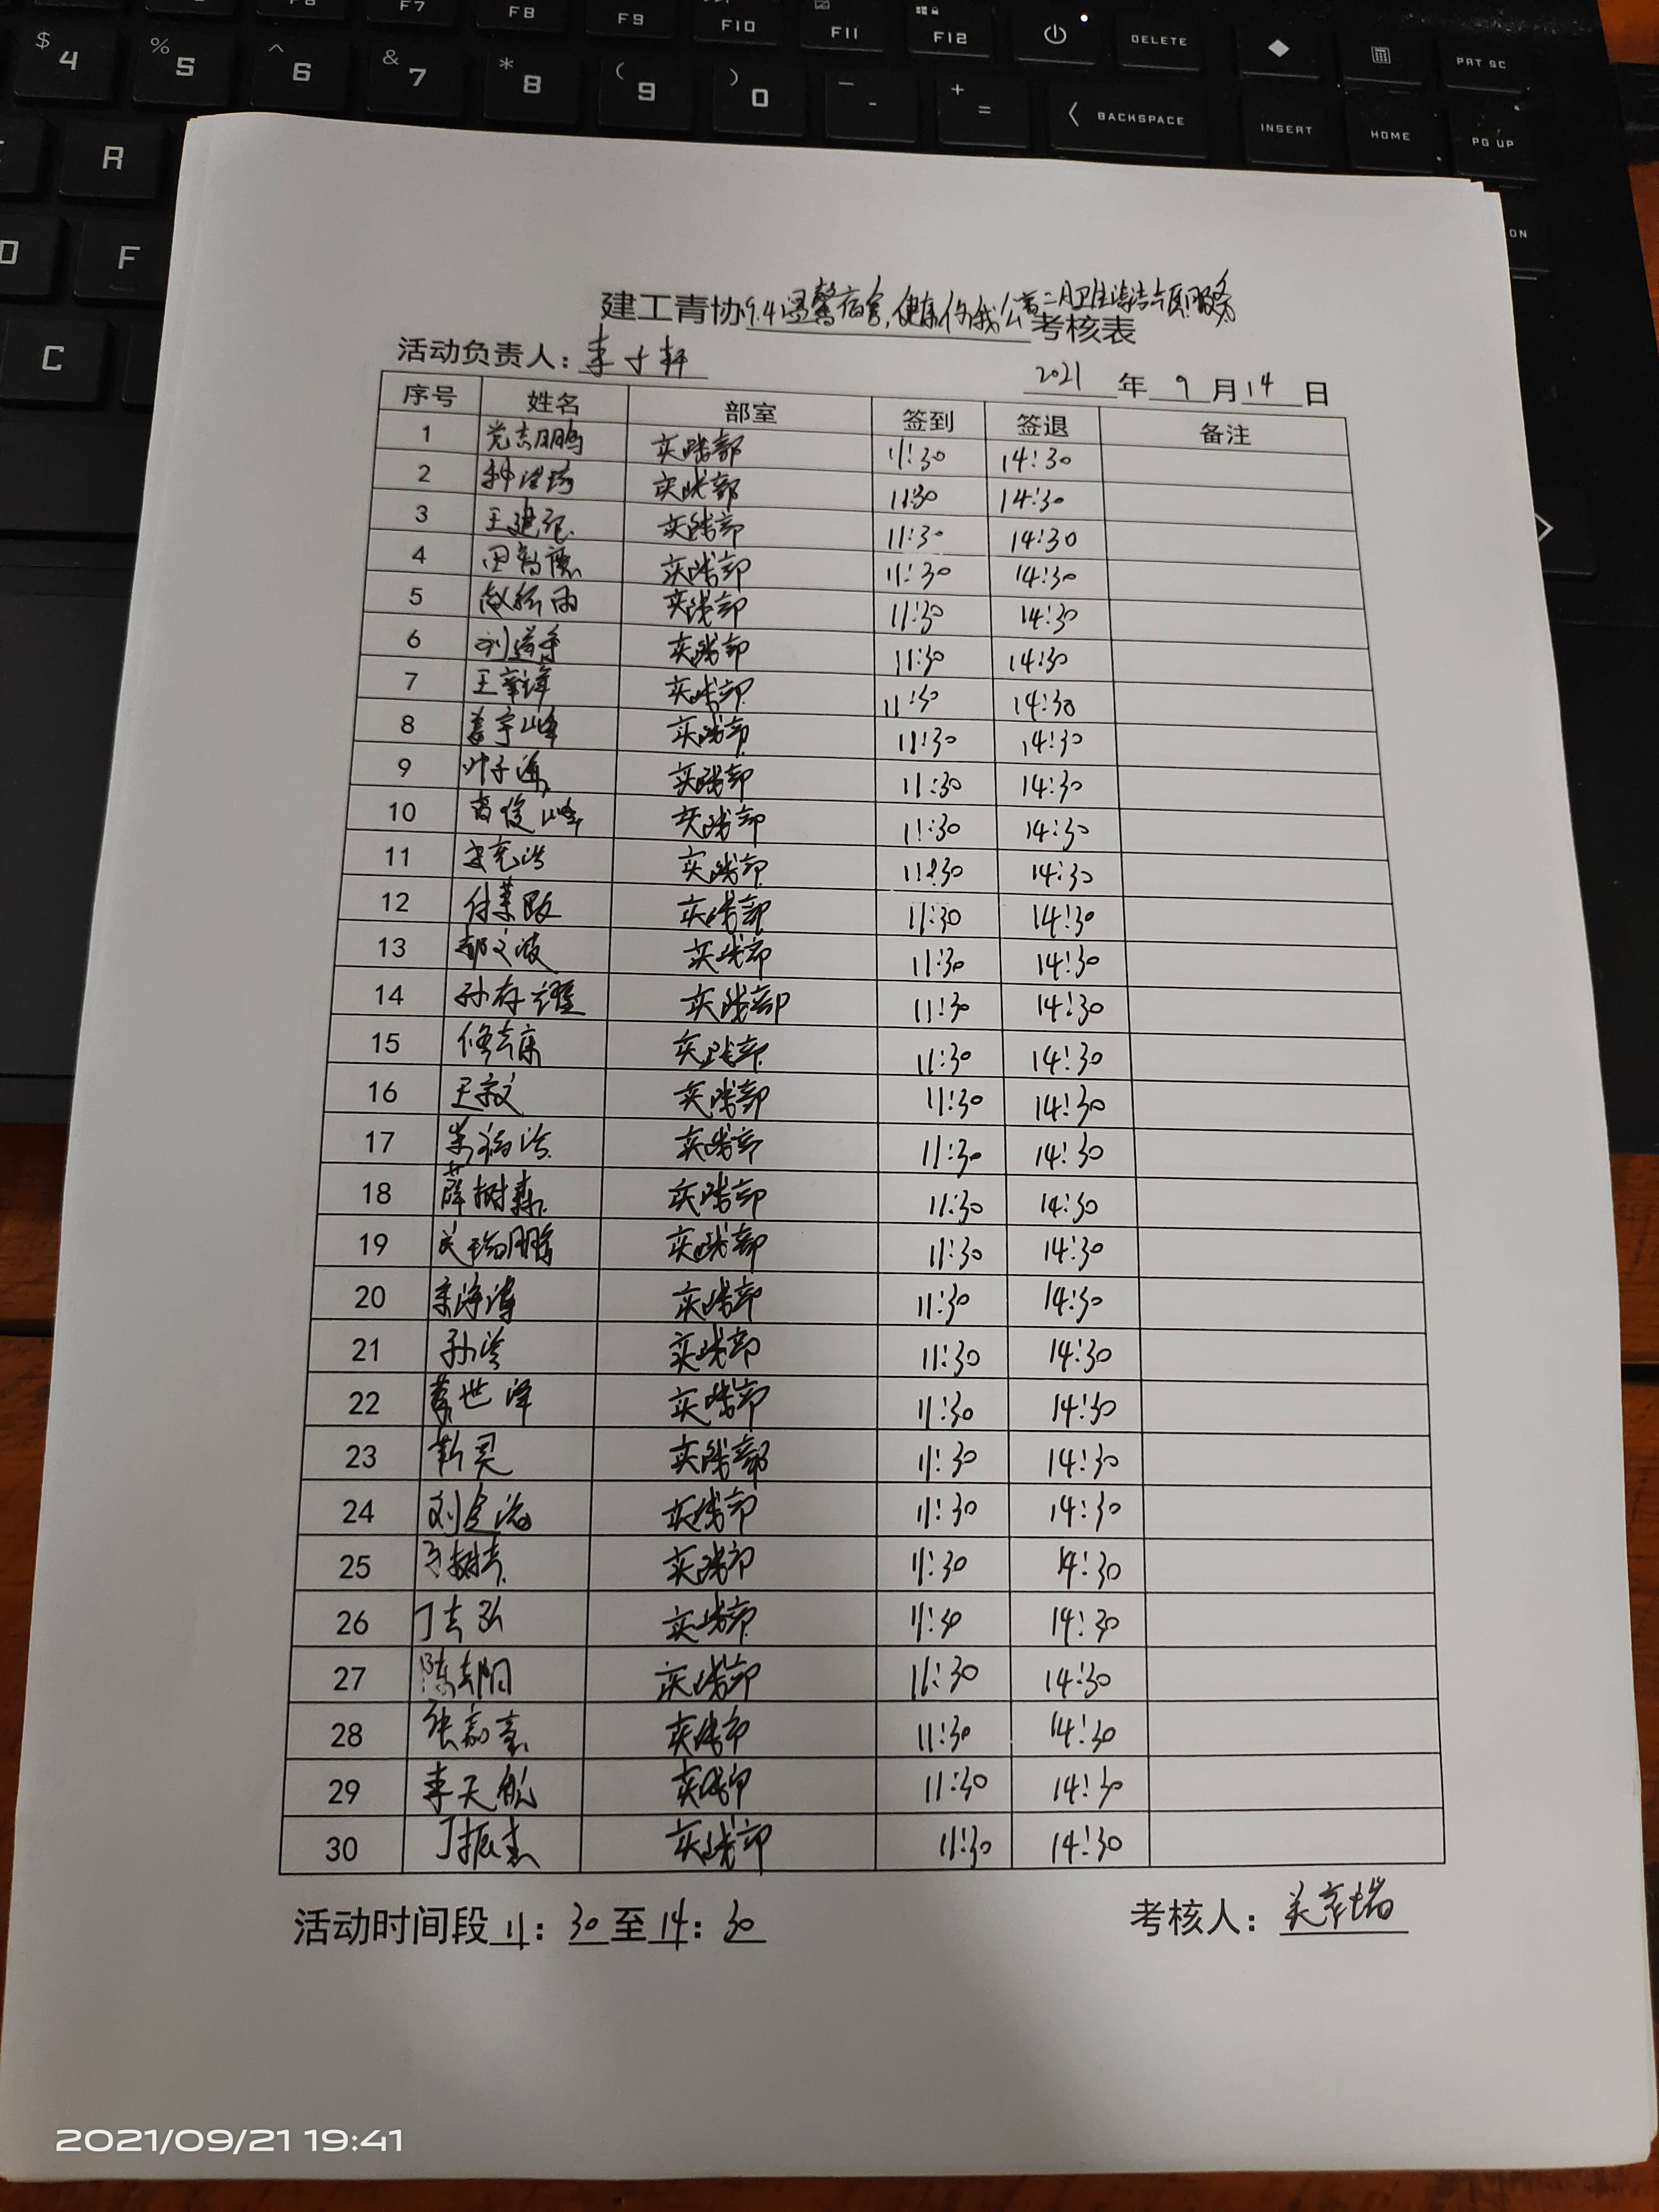 $ 4 % 5 ^ 6 & 7 * 8 ( 9 ) 0 _ - + = BACKSPACE INSERT HOME PG UP
F7 F8 F9 F10 F11 F12 DELETE PRT SC
R
F
C
建工青协9.4温馨宿舍,健康你我公寓二月卫生清洁志愿服务考核表
活动负责人：李子轩 2021年9月14日
序号 姓名 部室 签到 签退 备注
1 党志鹏 实践部 11:30 14:30
2 实践部 11:30 14:30
3 王建 实践部 11:30 14:30
4 田 实践部 11:30 14:30
5 赵 雨 实践部 11:30 14:30
6 刘 实践部 11:30 14:30
7 王 实践部 11:30 14:30
8 姜宇峰 实践部 11:30 14:30
9 叶子 实践部 11:30 14:30
10 高俊峰 实践部 11:30 14:30
11 实践部 11:30 14:30
12 付 实践部 11:30 14:30
13 郝文波 实践部 11:30 14:30
14 孙存耀 实践部 11:30 14:30
15 修志康 实践部 11:30 14:30
16 王 文 实践部 11:30 14:30
17 实践部 11:30 14:30
18 薛树森 实践部 11:30 14:30
19 鹏 实践部 11:30 14:30
20 海涛 实践部 11:30 14:30
21 孙 实践部 11:30 14:30
22 世泽 实践部 11:30 14:30
23 靳昊 实践部 11:30 14:30
24 刘金 实践部 11:30 14:30
25 树 实践部 11:30 14:30
26 丁志弘 实践部 11:30 14:30
27 陈朝阳 实践部 11:30 14:30
28 张嘉豪 实践部 11:30 14:30
29 李天航 实践部 11:30 14:30
30 丁振杰 实践部 11:30 14:30
活动时间段11：30至14：30 考核人：
2021/09/21 19:41